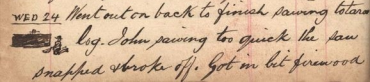 WED 24 Went out on back to finish sawing totara
log. John sawing too quick the saw
snapped & broke off. Got in bit firewood